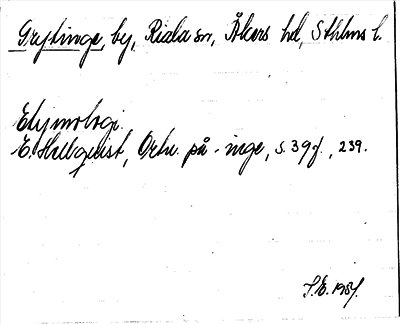 Grytinge, by, Riala sn, Åkers hd, Sthlms l.
Etymologi.
E. Hellquist, Ortn. på -inge, s. 39f., 239.
S.E. 1984.